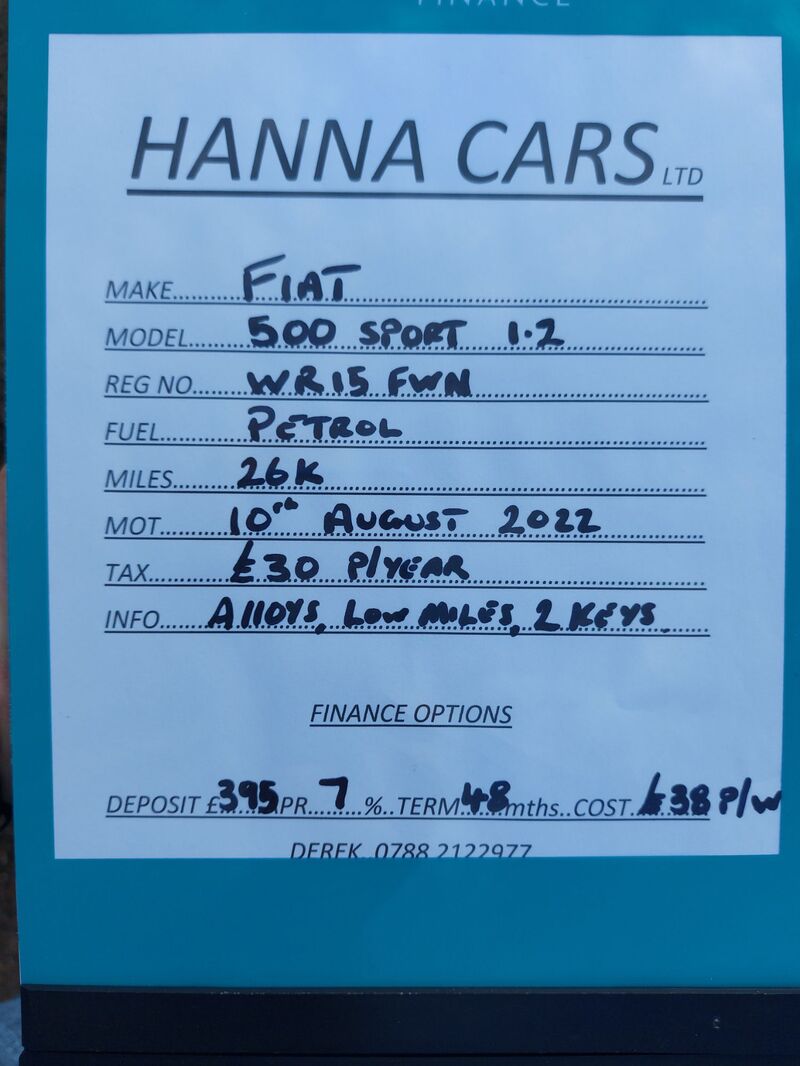 FINANCE
HANNA CARS LTD
MAKE........FIAT........
MODEL........500 SPORT 1.2........
REG NO........WR15 FWN........
FUEL........PETROL........
MILES........26K........
MOT........10th AUGUST 2022........
TAX........£30 P/YEAR........
INFO........ALLOYS, LOW MILES, 2 KEYS........
FINANCE OPTIONS
DEPOSIT £395 APR...7...%..TERM 48 mths..COST...£38 P/W
DEREK 0788 2122977